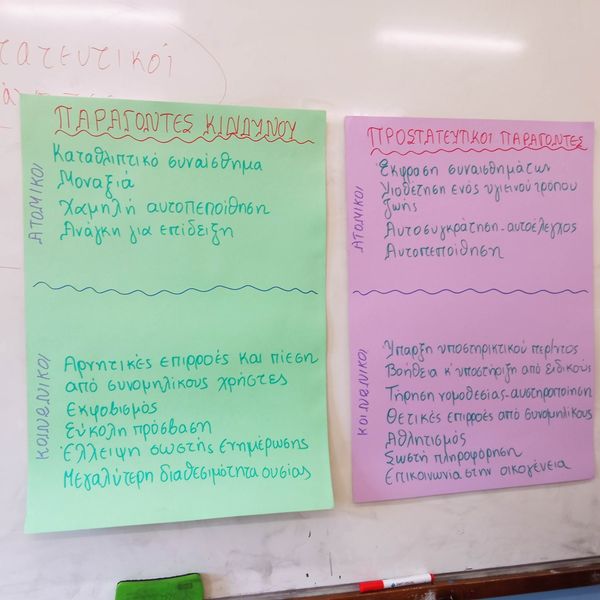 τατευτικοί
ΠΑΡΑΓΟΝΤΕΣ ΚΙΝΔΥΝΟΥ
ΑΤΟΜΙΚΟΙ
Καταθλιπτικό συναίσθημα
Μοναξιά
Χαμηλή αυτοπεποίθηση
Ανάγκη για επίδειξη
ΚΟΙΝΩΝΙΚΟΙ
Αρνητικές επιρροές και πίεση
από συνομηλίκους χρήστες
Εκφοβισμός
Εύκολη πρόσβαση
Έλλειψη σωστής ενημέρωσης
Μεγαλύτερη διαθεσιμότητα ουσίας
ΠΡΟΣΤΑΤΕΥΤΙΚΟΙ ΠΑΡΑΓΟΝΤΕΣ
ΑΤΟΜΙΚΟΙ
Έκφραση συναισθημάτων
Υιοθέτηση ενός υγιεινού τρόπου
ζωής
Αυτοσυγκράτηση-αυτοέλεγχος
Αυτοπεποίθηση
ΚΟΙΝΩΝΙΚΟΙ
Ύπαρξη υποστηρικτικού
Βοήθεια κ' υποστήριξη από ειδικούς
Τήρηση νομοθεσίας-αυστηροποίηση
Θετικές επιρροές από συνομηλίκους
Αθλητισμός
Σωστή πληροφόρηση
Επικοινωνία στην οικογένεια